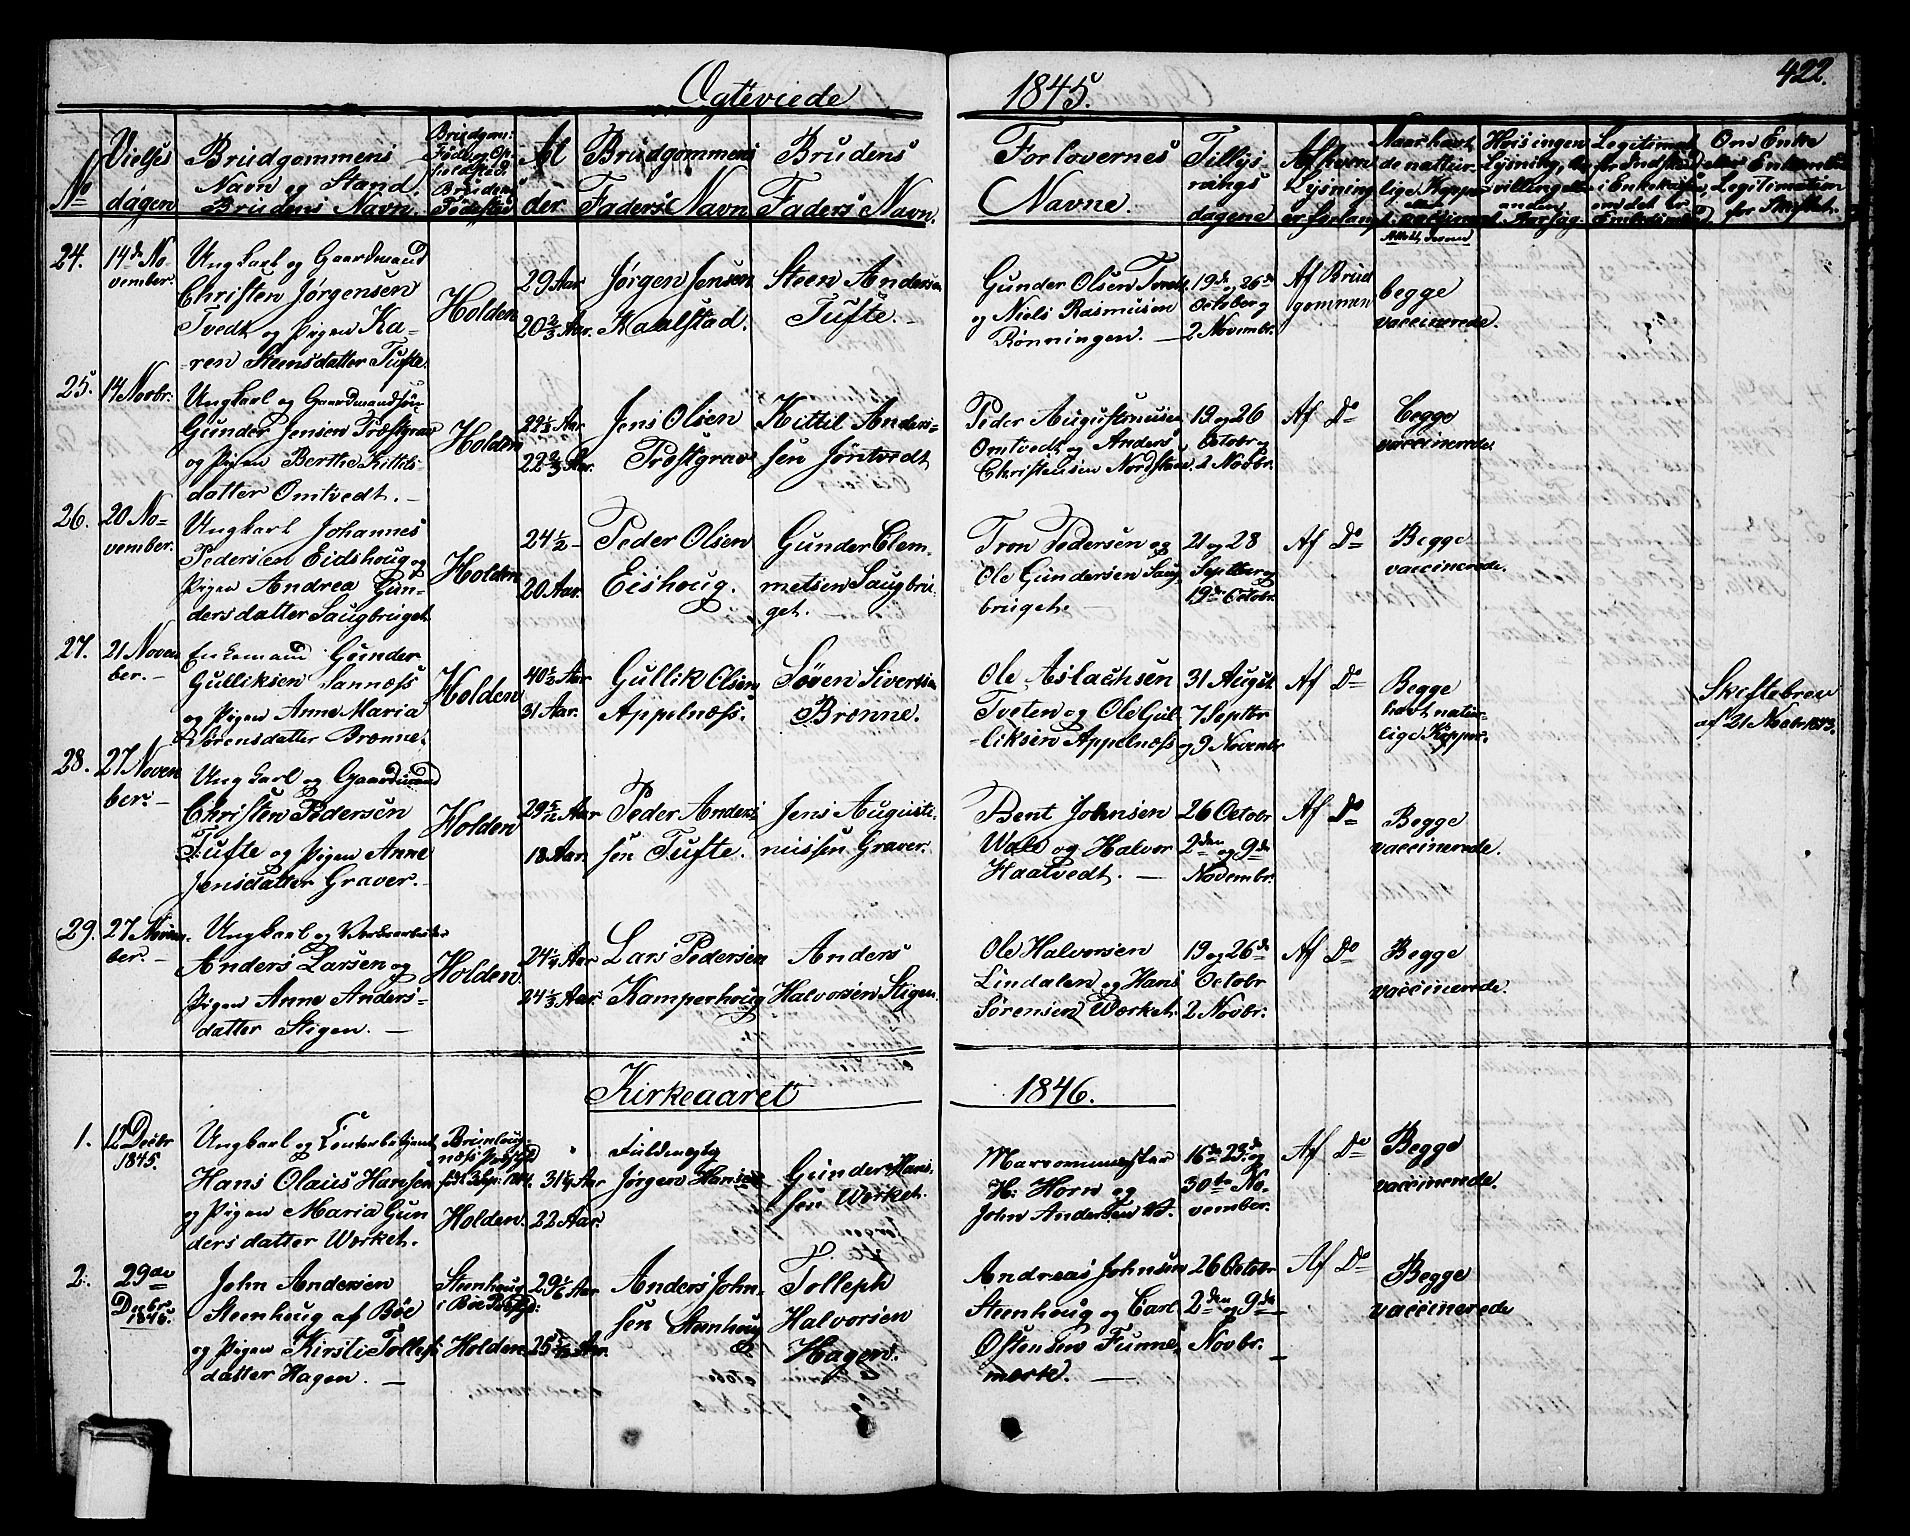 422.
Ogteviede
1845.
No
Vielses
dagen
Brudgommens
Navn og Stand.
Brudens Navn.
Brudgom:
Føde og Op-
holdsted.
Brudens
Fødested
Al
der
Brudgommens
Faders Navn
Brudens
Faders Navn.
Forlovernes
Navne.
Tillys
nings
dagene
Af hvem
Lysning
er forlangt
Om Enke
eller Enkemand
Legitimation
for Skiftet.
24.
14de No-
vember.
Ungkarl og Gaardmand
Christen Jørgensen
Tvedt og Pigen Ka-
-ren Steensdatter Tufte.
Holden
29 Aar
20 2/3 Aar.
Jørgen Jensen
Kaalstad.
Steen Andersen
Tufte.
Gunder Olsen Tvedt
og Niels Rasmusen
Rønningen.
19de og 26de
October og
2 Novembr.
Af Brud
gommen
begge
vaccinerede.
25.
14 Novbr:
Ungkarl og Gaardmandssøn
Gunder Jensen Træstgrav
og Pigen Berthe Kittils-
datter Omtvedt.
Holden
22 2/3 Aar.
Jens Olsen
Træstgrav
Kittil Anders-
sen Jøntvedt
Peder Augustinusen
Omtvedt og Anders
Christensen Nordstuen
19 og 26
Octobr og
2 Novbr.
Af Do
Begge
vaccinerede.
26.
20 No-
vember.
Ungkarl Johannes
Pedersen Eidshoug og
Pigen Andrea Gun-
dersdatter Saugbruget
Holden
24 1/2
20 Aar.
Peder Olsen
Eishoug.
Gunder Clem-
metsen Saugbru-
get.
Tron Pedersen og
Ole Gundersen Saug
bruget.
21 og 28
Septber og
19de Octobr.
Af Do
Begge
vaccinerede.
27.
21 Novem
ber.
Enkemand Gunder
Gulliksen Sannæss
og Pigen Anne Maria
Sørensdatter Brønne.
Holden
40 1/2 Aar
31 Aar.
Gullik Olsen
Appelnæss.
Søren Sivertsen
Brønne.
Ole Aslachsen
Tveten og Ole Gul-
liksen Appelnæss
31 August
7 Septbr
og 9 Novembr
Af Do
Begge
havt natur-
lige Kopper.
Skiftebrev
af 21 Novbr 1843.
28.
27 Novem
ber.
Ungkarl og Gaardmand
Christen Pedersen
Tufte og Pigen Anne
Jensdatter Graver.
Holden
29 5/12 Aar
18 Aar.
Peder Anders
sen Tufte.
Jens Augusti-
nussen Graver.
Bent Johnsen
Wale og Halvor
Haatvedt.
26 Octobr
2den og 9de
Novembr.
Af Do
Begge
vaccinerede.
29.
27 Novem-
ber.
Ungkarl og Værksarbeider
Anders Larsen og
Pigen Anne Anders-
datter Stigen.
Holden
24 1/4 Aar
24 1/3 Aar
Lars Pedersen
Kamperhoug
Anders
Halvorsen Stigen.
Ole Halvorsen
Lindalen og Hans
Sørensen Værket.
19 og 26de
Octobr
2 Novbr.
Af Do
Begge
vaccinerede.
Kirkeaaret
1846.
1.
12 Decbr
1845.
Ungkarl og Contorbetjent
Hans Olaus Hansen
og Pigen Maria Gun
dersdatter Værket.
Holden.
31 1/4 Aar
22 Aar.
Fuldmægtig
Jørgen Hansen
Gunder Hans-
sen Værket.
Marsovnmester
H: Horn og
John Andersen
16de 23de og
30te No-
vember.
Af Do
Begge
vaccinerede.
2.
29de
Decbr
1845.
John Andersen
Steenhoug af Bøe
og Pigen Kirsti Tollefs
datter Hagen.
Steenhoug
i Bøe Præstgd:
Holden
29 1/6 Aar
25 5/12 Aar.
Anders John-
sen Steenhoug
Tolleph
Halvorsen
Hagen.
Andreas Johnsen
Steenhoug og Carl
Østensen Funne-
mærke.
26 Octobr
2den og 9de
Novbr.
Af Do
Begge
vaccinerede